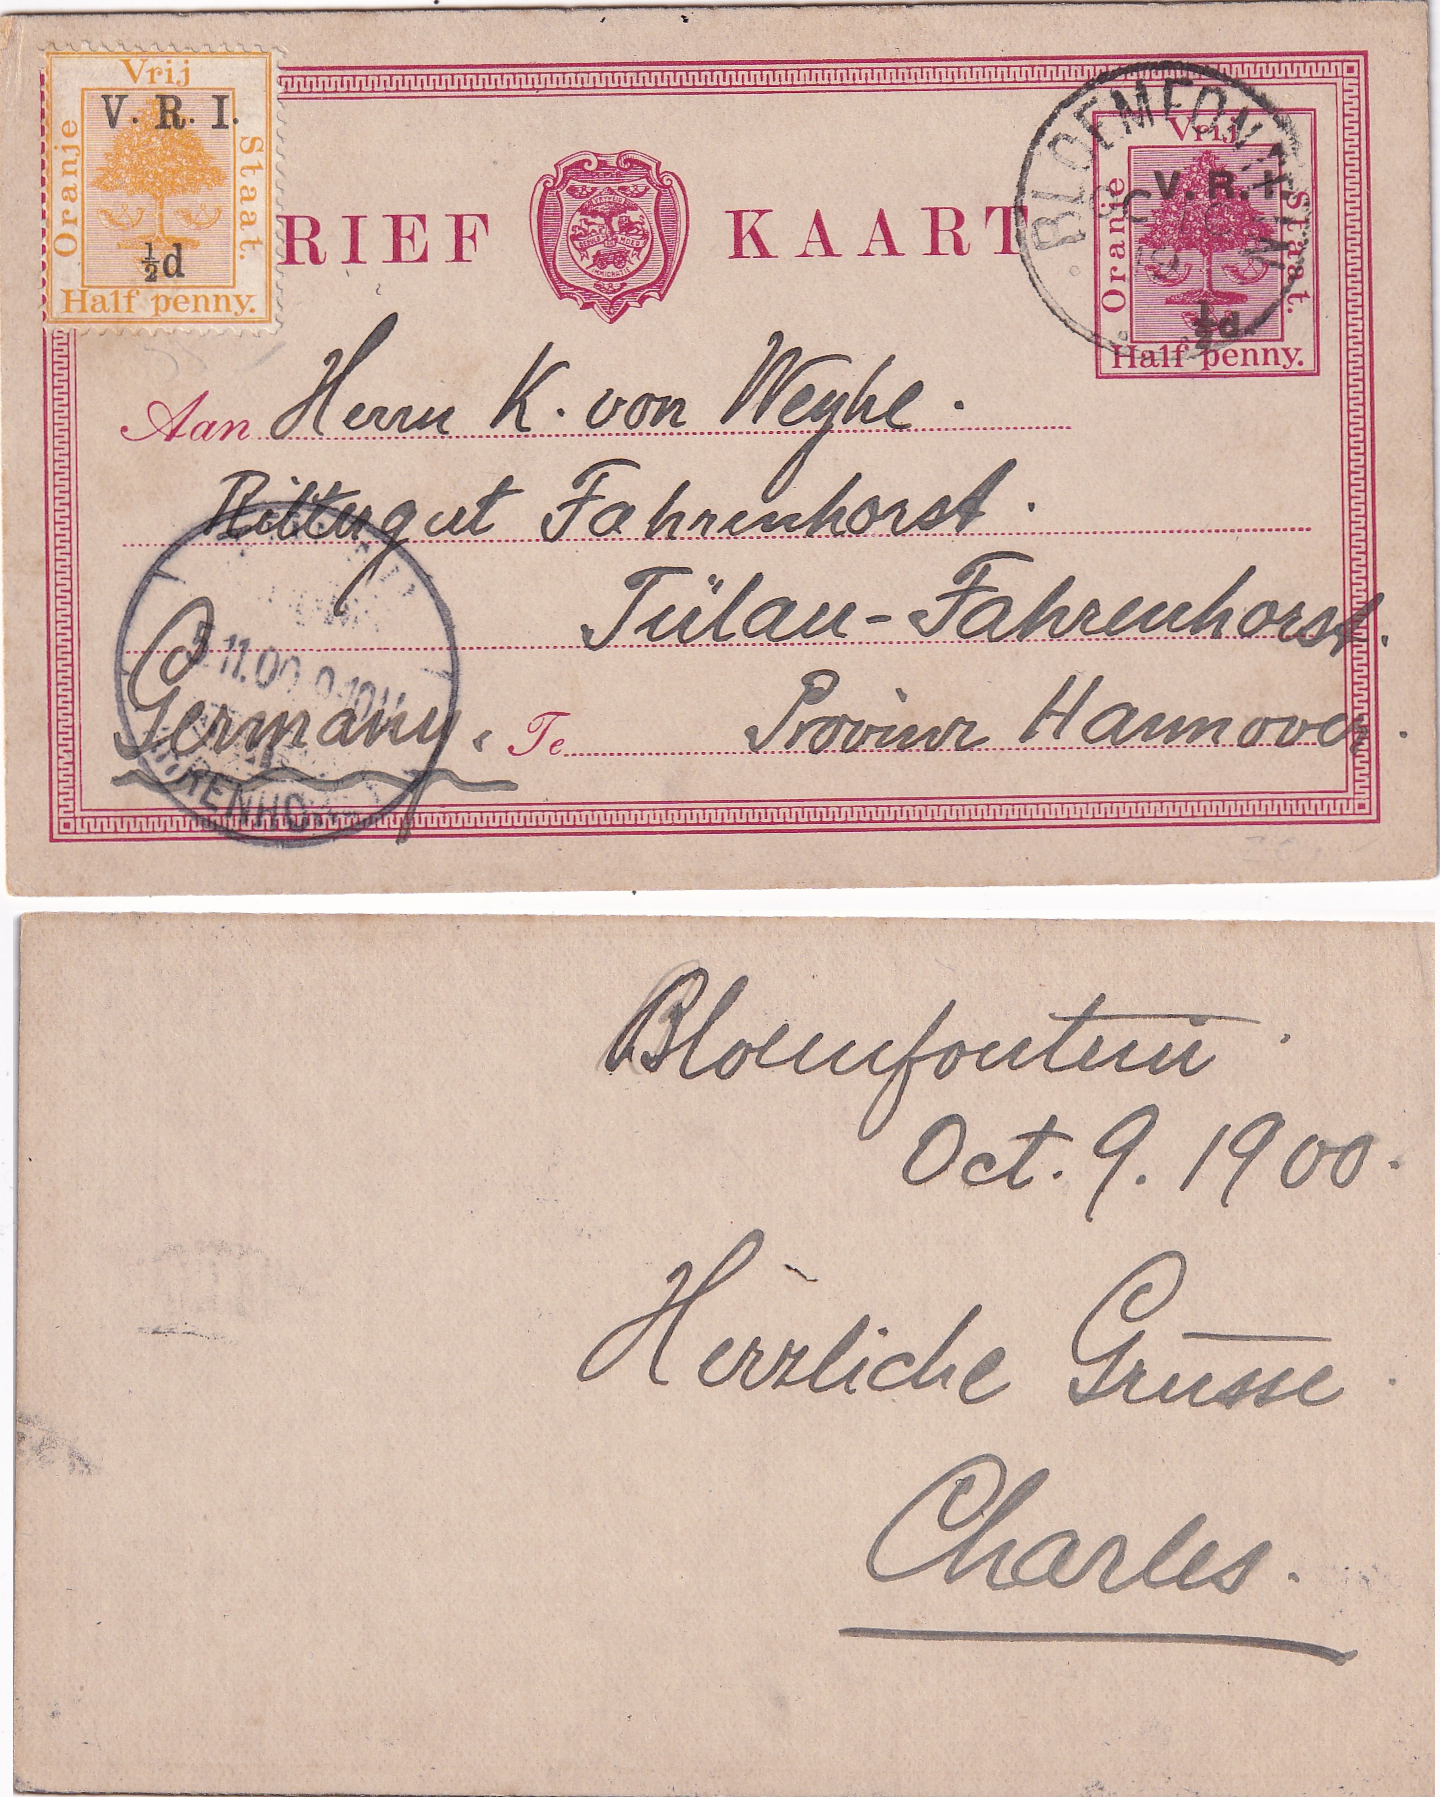 Vrij
Oranje
Staat.
V. R. I.
½d
Half penny.
RIEF KAART
IMMIGRATIE
BLOEMFONTEIN
Vrij
Oranje
Staat.
V. R. I.
½d
Half penny.
Aan Herrn K. von Weyhe.
Rittergut Fahrenhorst.
Tülau-Fahrenhorst.
Germany. Te Provinz Hannover.
5 11.00 9-10V
Bloemfontein.
Oct. 9. 1900.
Herzliche Grüsse.
Charles.